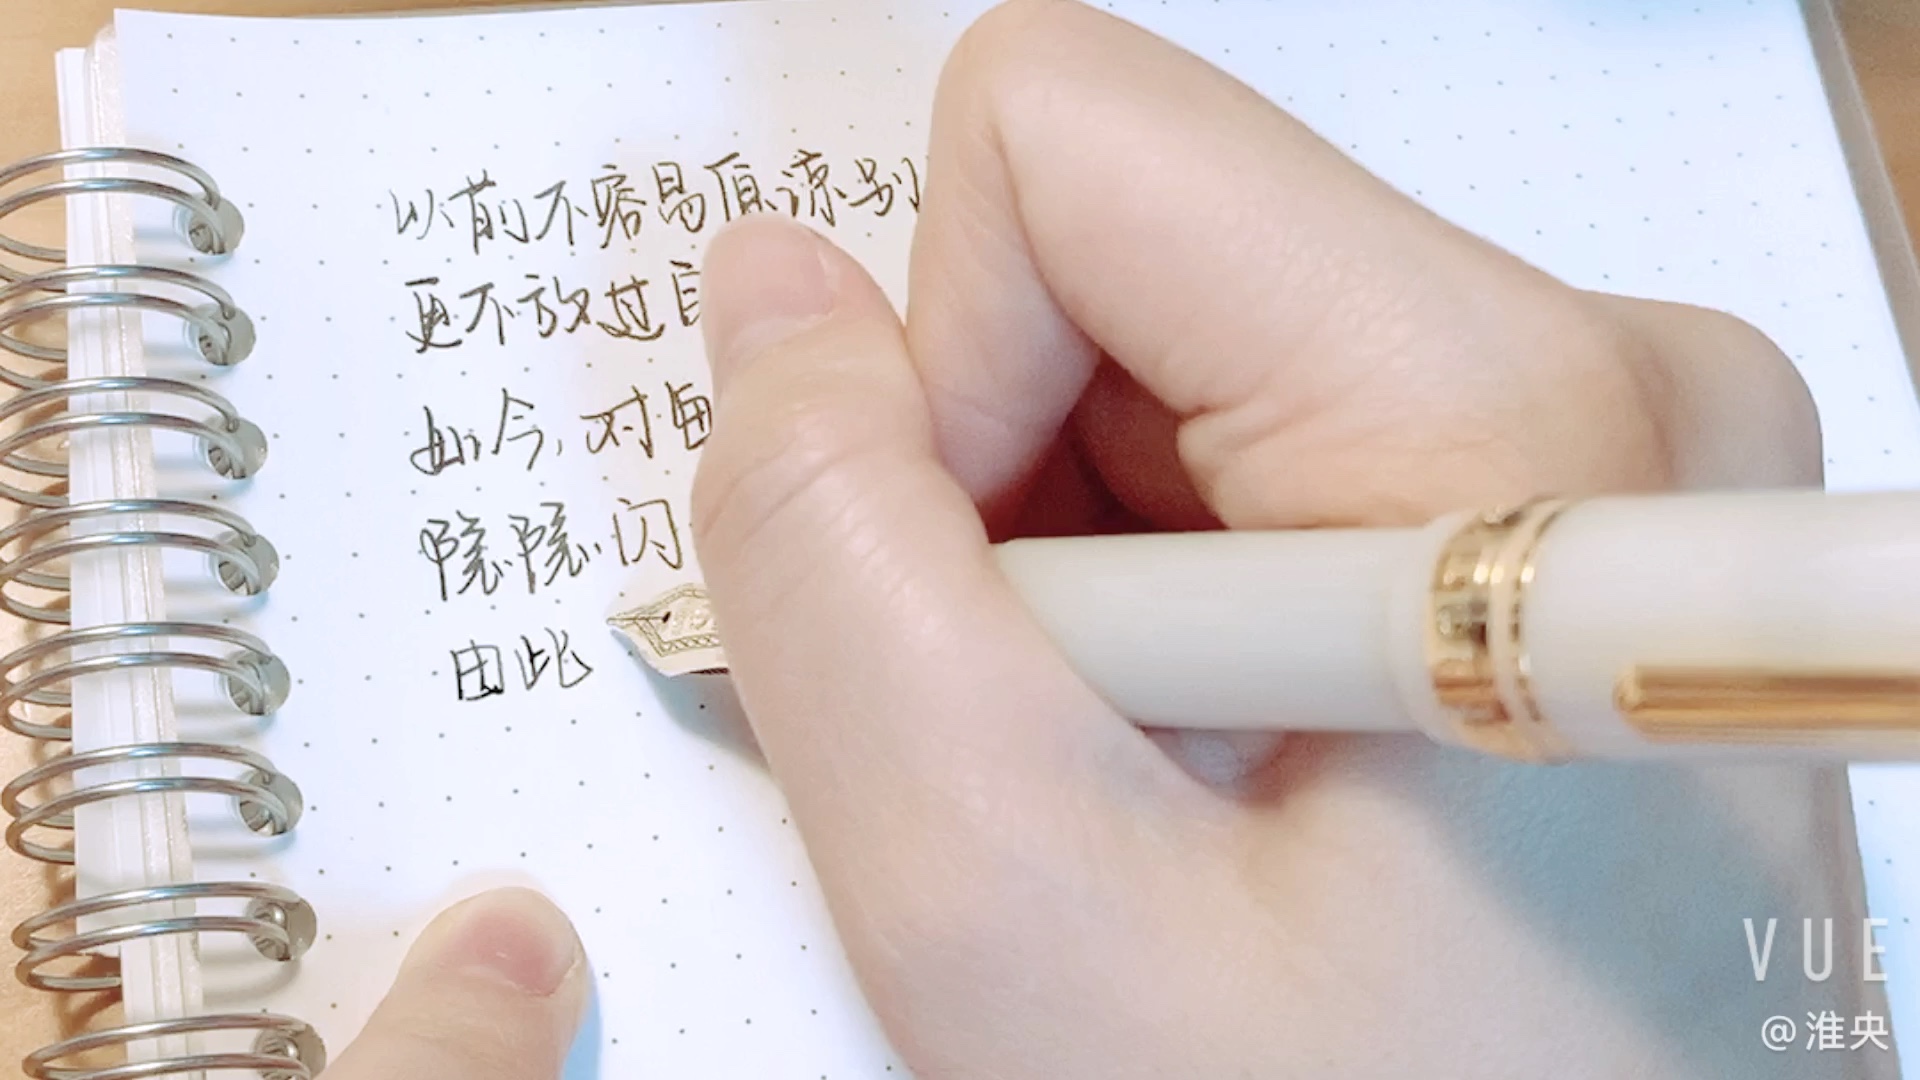 以前不容易原谅别
更不放过自
如今,对每
隐隐闪
由此
VUE
@淮央